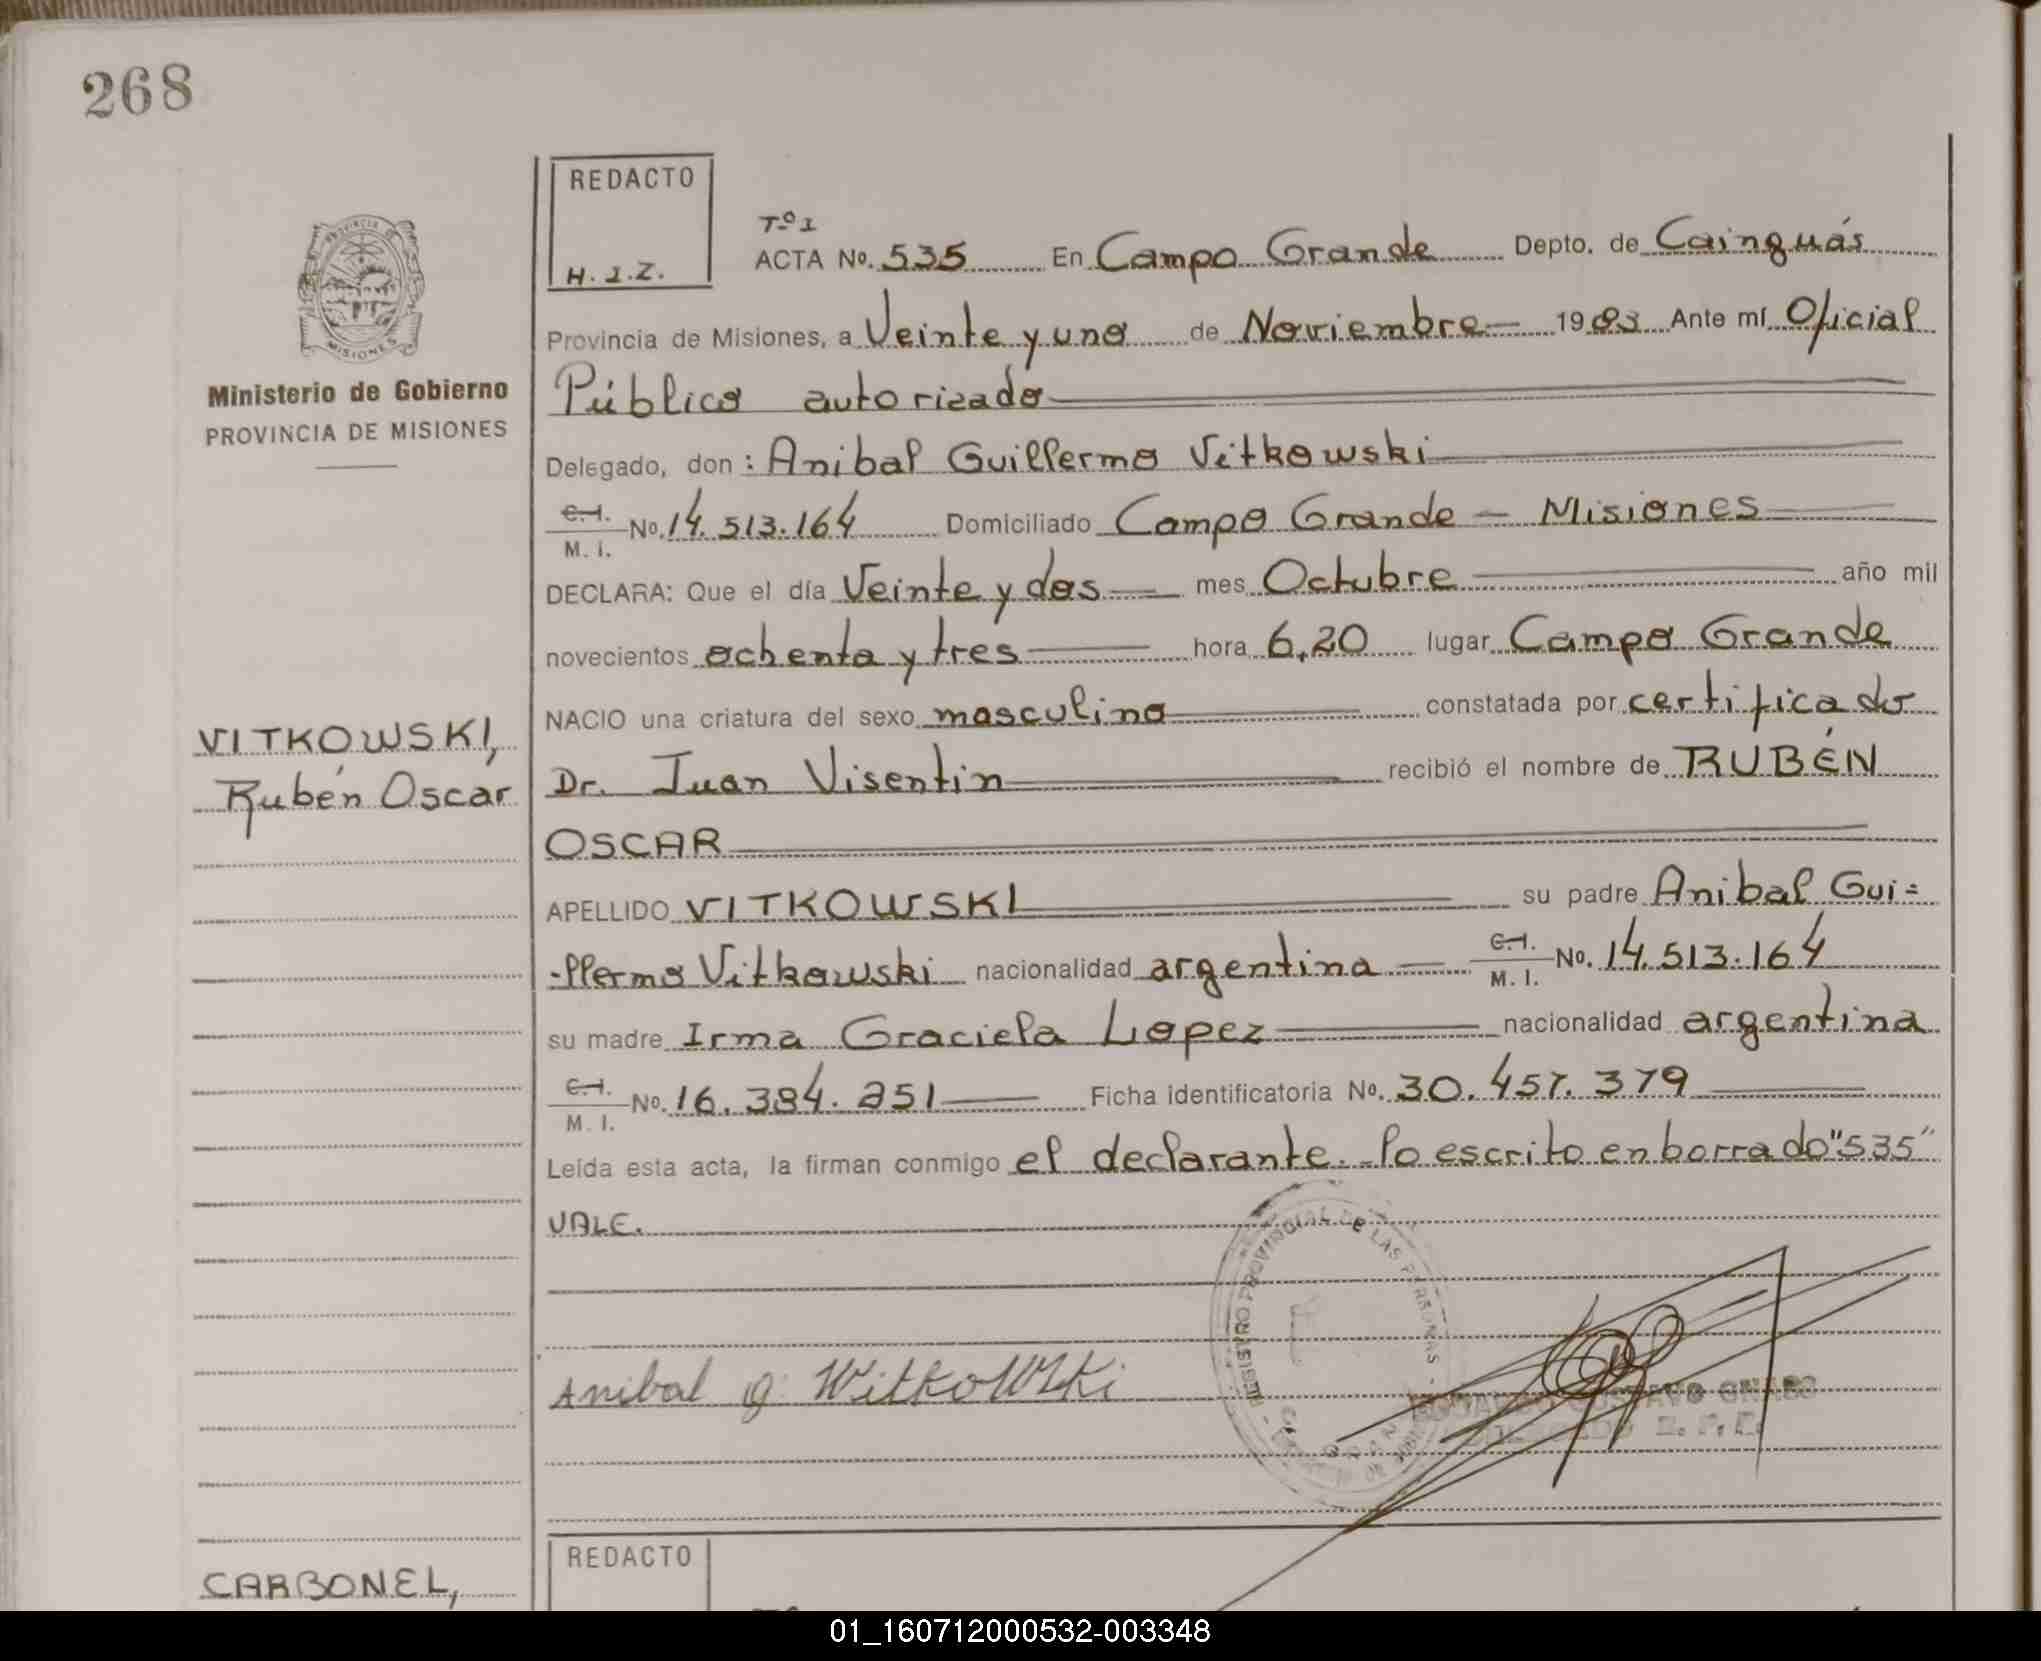 268
REDACTO
H.I.Z.
Tº I
ACTA Nº. 535 En Campo Grande Depto. de Cainguás
Provincia de Misiones, a Veinte y uno de Noviembre 1983 Ante mí Oficial
Público autorizado
Delegado, don: Anibal Guillermo Vitkowski
C.I.
M.I. Nº. 14.513.164 Domiciliado Campo Grande - Misiones
DECLARA: Que el día Veinte y dos mes Octubre año mil
novecientos ochenta y tres hora 6,20 lugar Campo Grande
NACIO una criatura del sexo masculino constatada por certificado
Dr. Juan Visentin recibió el nombre de RUBÉN
OSCAR
APELLIDO VITKOWSKI su padre Anibal Gui=
-llermo Vitkowski nacionalidad argentina C.I. M.I. Nº. 14.513.164
su madre Irma Graciela Lopez nacionalidad argentina
C.I.
M.I. Nº. 16.384.251 Ficha identificatoria Nº. 30.457.379
Leída esta acta, la firman conmigo el declarante. lo escrito en borrado "535"
VALE.
Anibal G. Witkowski
REGISTRO PROVINCIAL DE LAS PERSONAS
PROVINCIA DE MISIONES
Ministerio de Gobierno
PROVINCIA DE MISIONES
VITKOWSKI,
Rubén Oscar
CARBONEL,
REDACTO
01_160712000532-003348